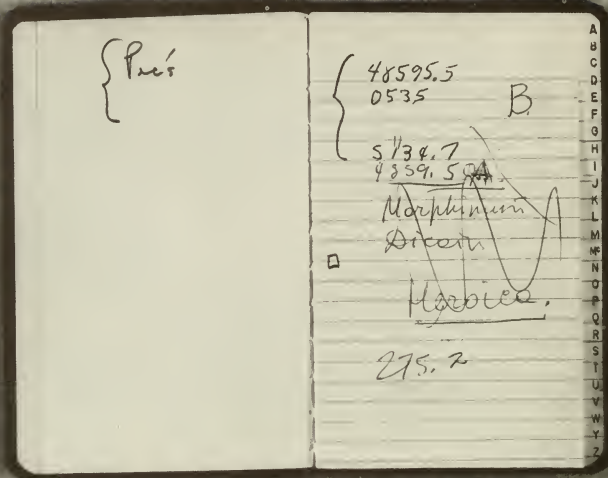 48595.5
0535
B.
51134.7
4859.5
Morphinum
Dicain
Heroica.
275.2
A
B
C
D
E
F
G
H
I
J
K
L
M
Mc
N
O
P
Q
R
S
T
U
V
W
Y
Z